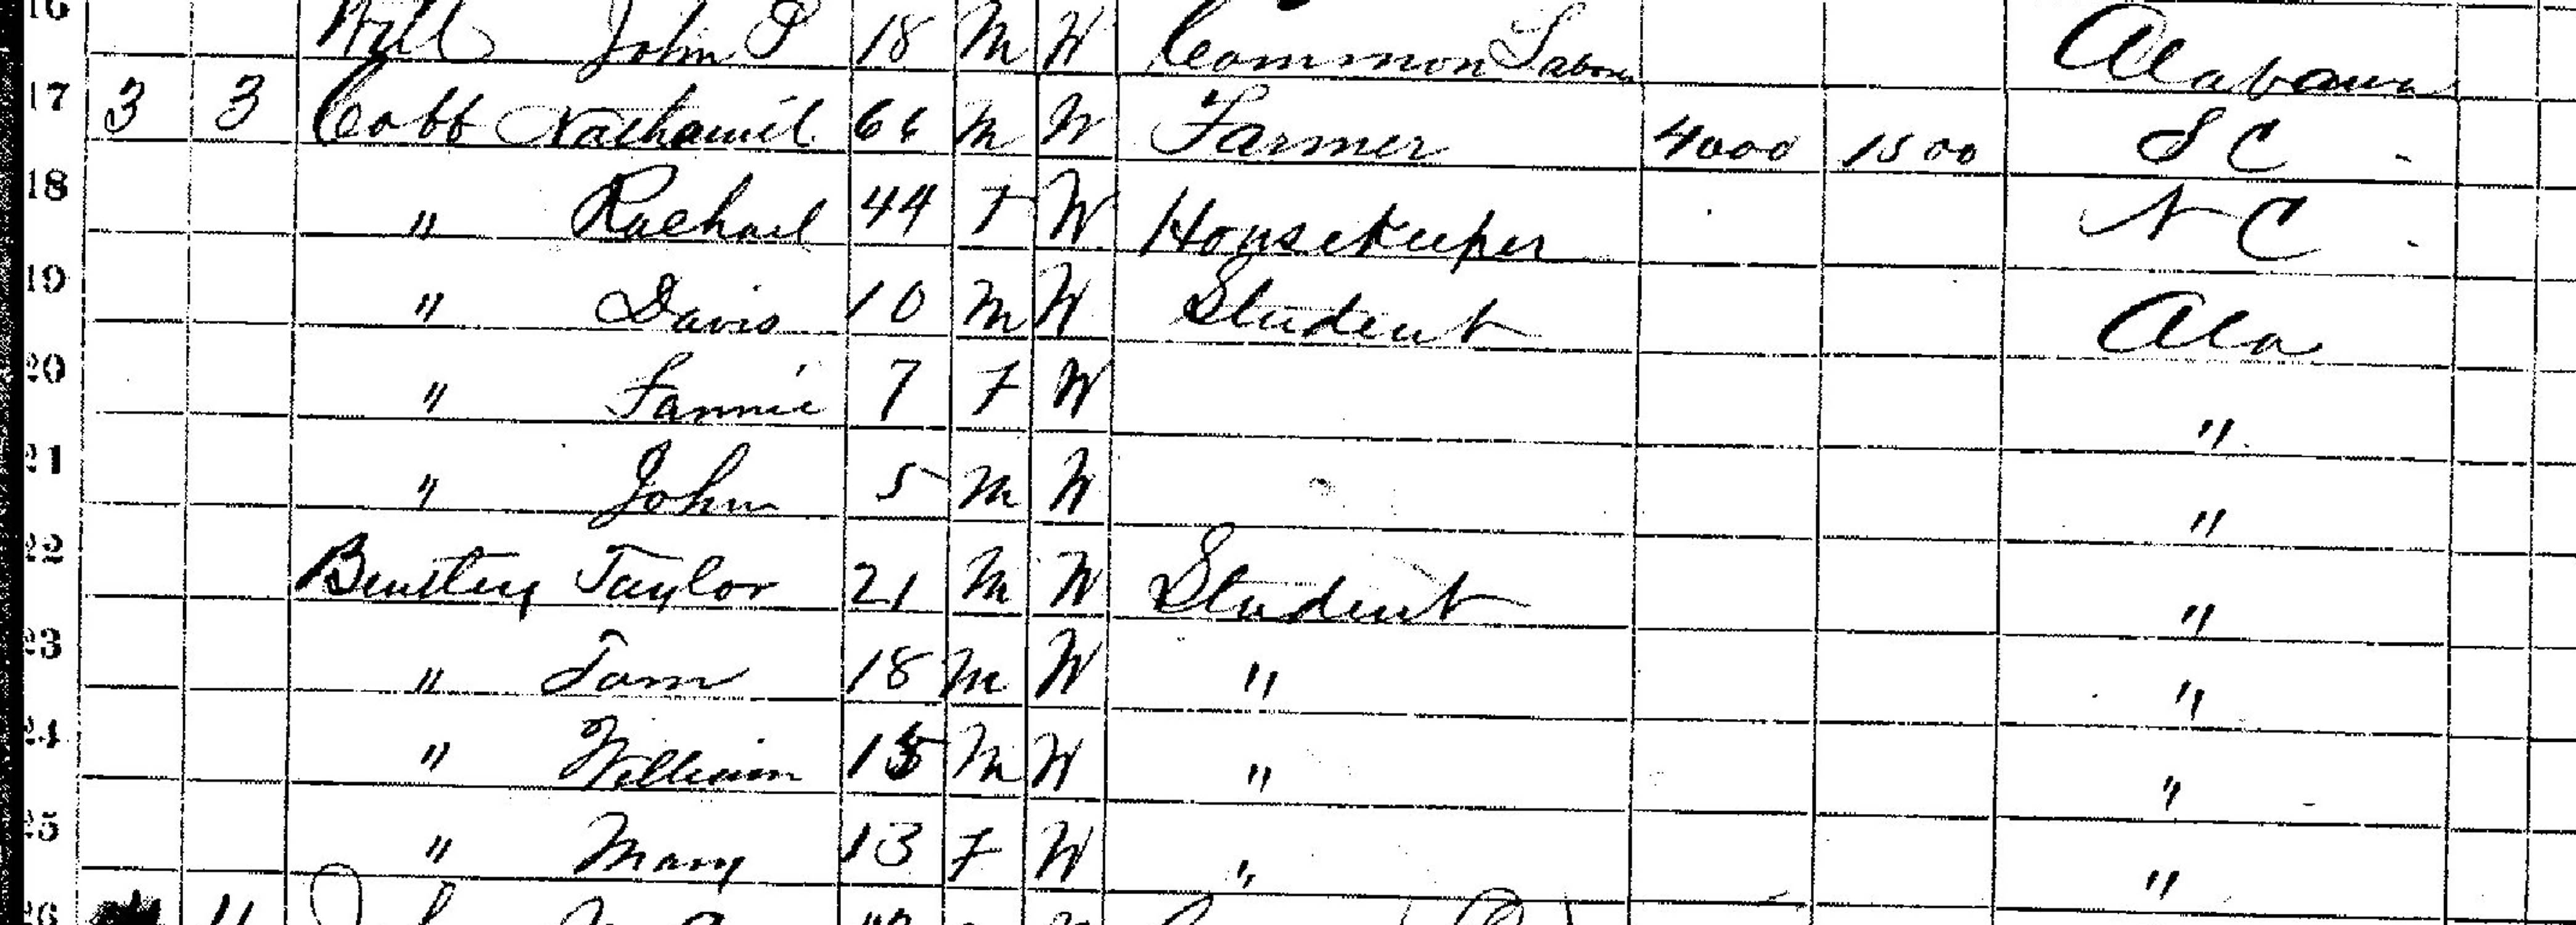 16 Hill John P 18 M W Common Labor Alabama
17 3 3 Cobb Nathaniel 66 M W Farmer 4000 1500 S C
18 " Rachael 44 F W Housekeeper N C
19 " Davis 10 M W Student Ala
20 " Fannie 7 F W "
21 " John 5 M W "
22 Taylor 21 M W Student "
23 " Tom 18 M W " "
24 " William 15 M W " "
25 " Mary 13 F W " "
26